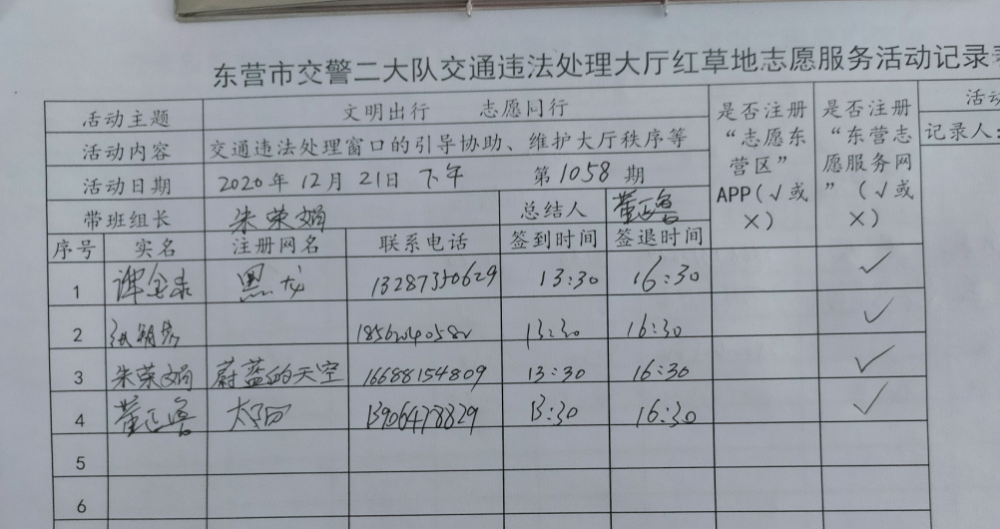 东营市交警二大队交通违法处理大厅红草地志愿服务活动记录
活动主题 文明出行 志愿同行 是否注册“志愿东营区”APP(√或×) 是否注册“东营志愿服务网”(√或×) 活动
活动内容 交通违法处理窗口的引导协助、维护大厅秩序等 记录人:
活动日期 2020年12月21日下午 第1058期
带班组长 朱荣娟 总结人 董正鲁
序号 实名 注册网名 联系电话 签到时间 签退时间
1 谭金录 黑龙 13287350629 13:30 16:30 ✓
2 18562040582 13:30 16:30 ✓
3 朱荣娟 蔚蓝的天空 16688154809 13:30 16:30 ✓
4 董正鲁 太阳 13906478829 13:30 16:30 ✓
5
6